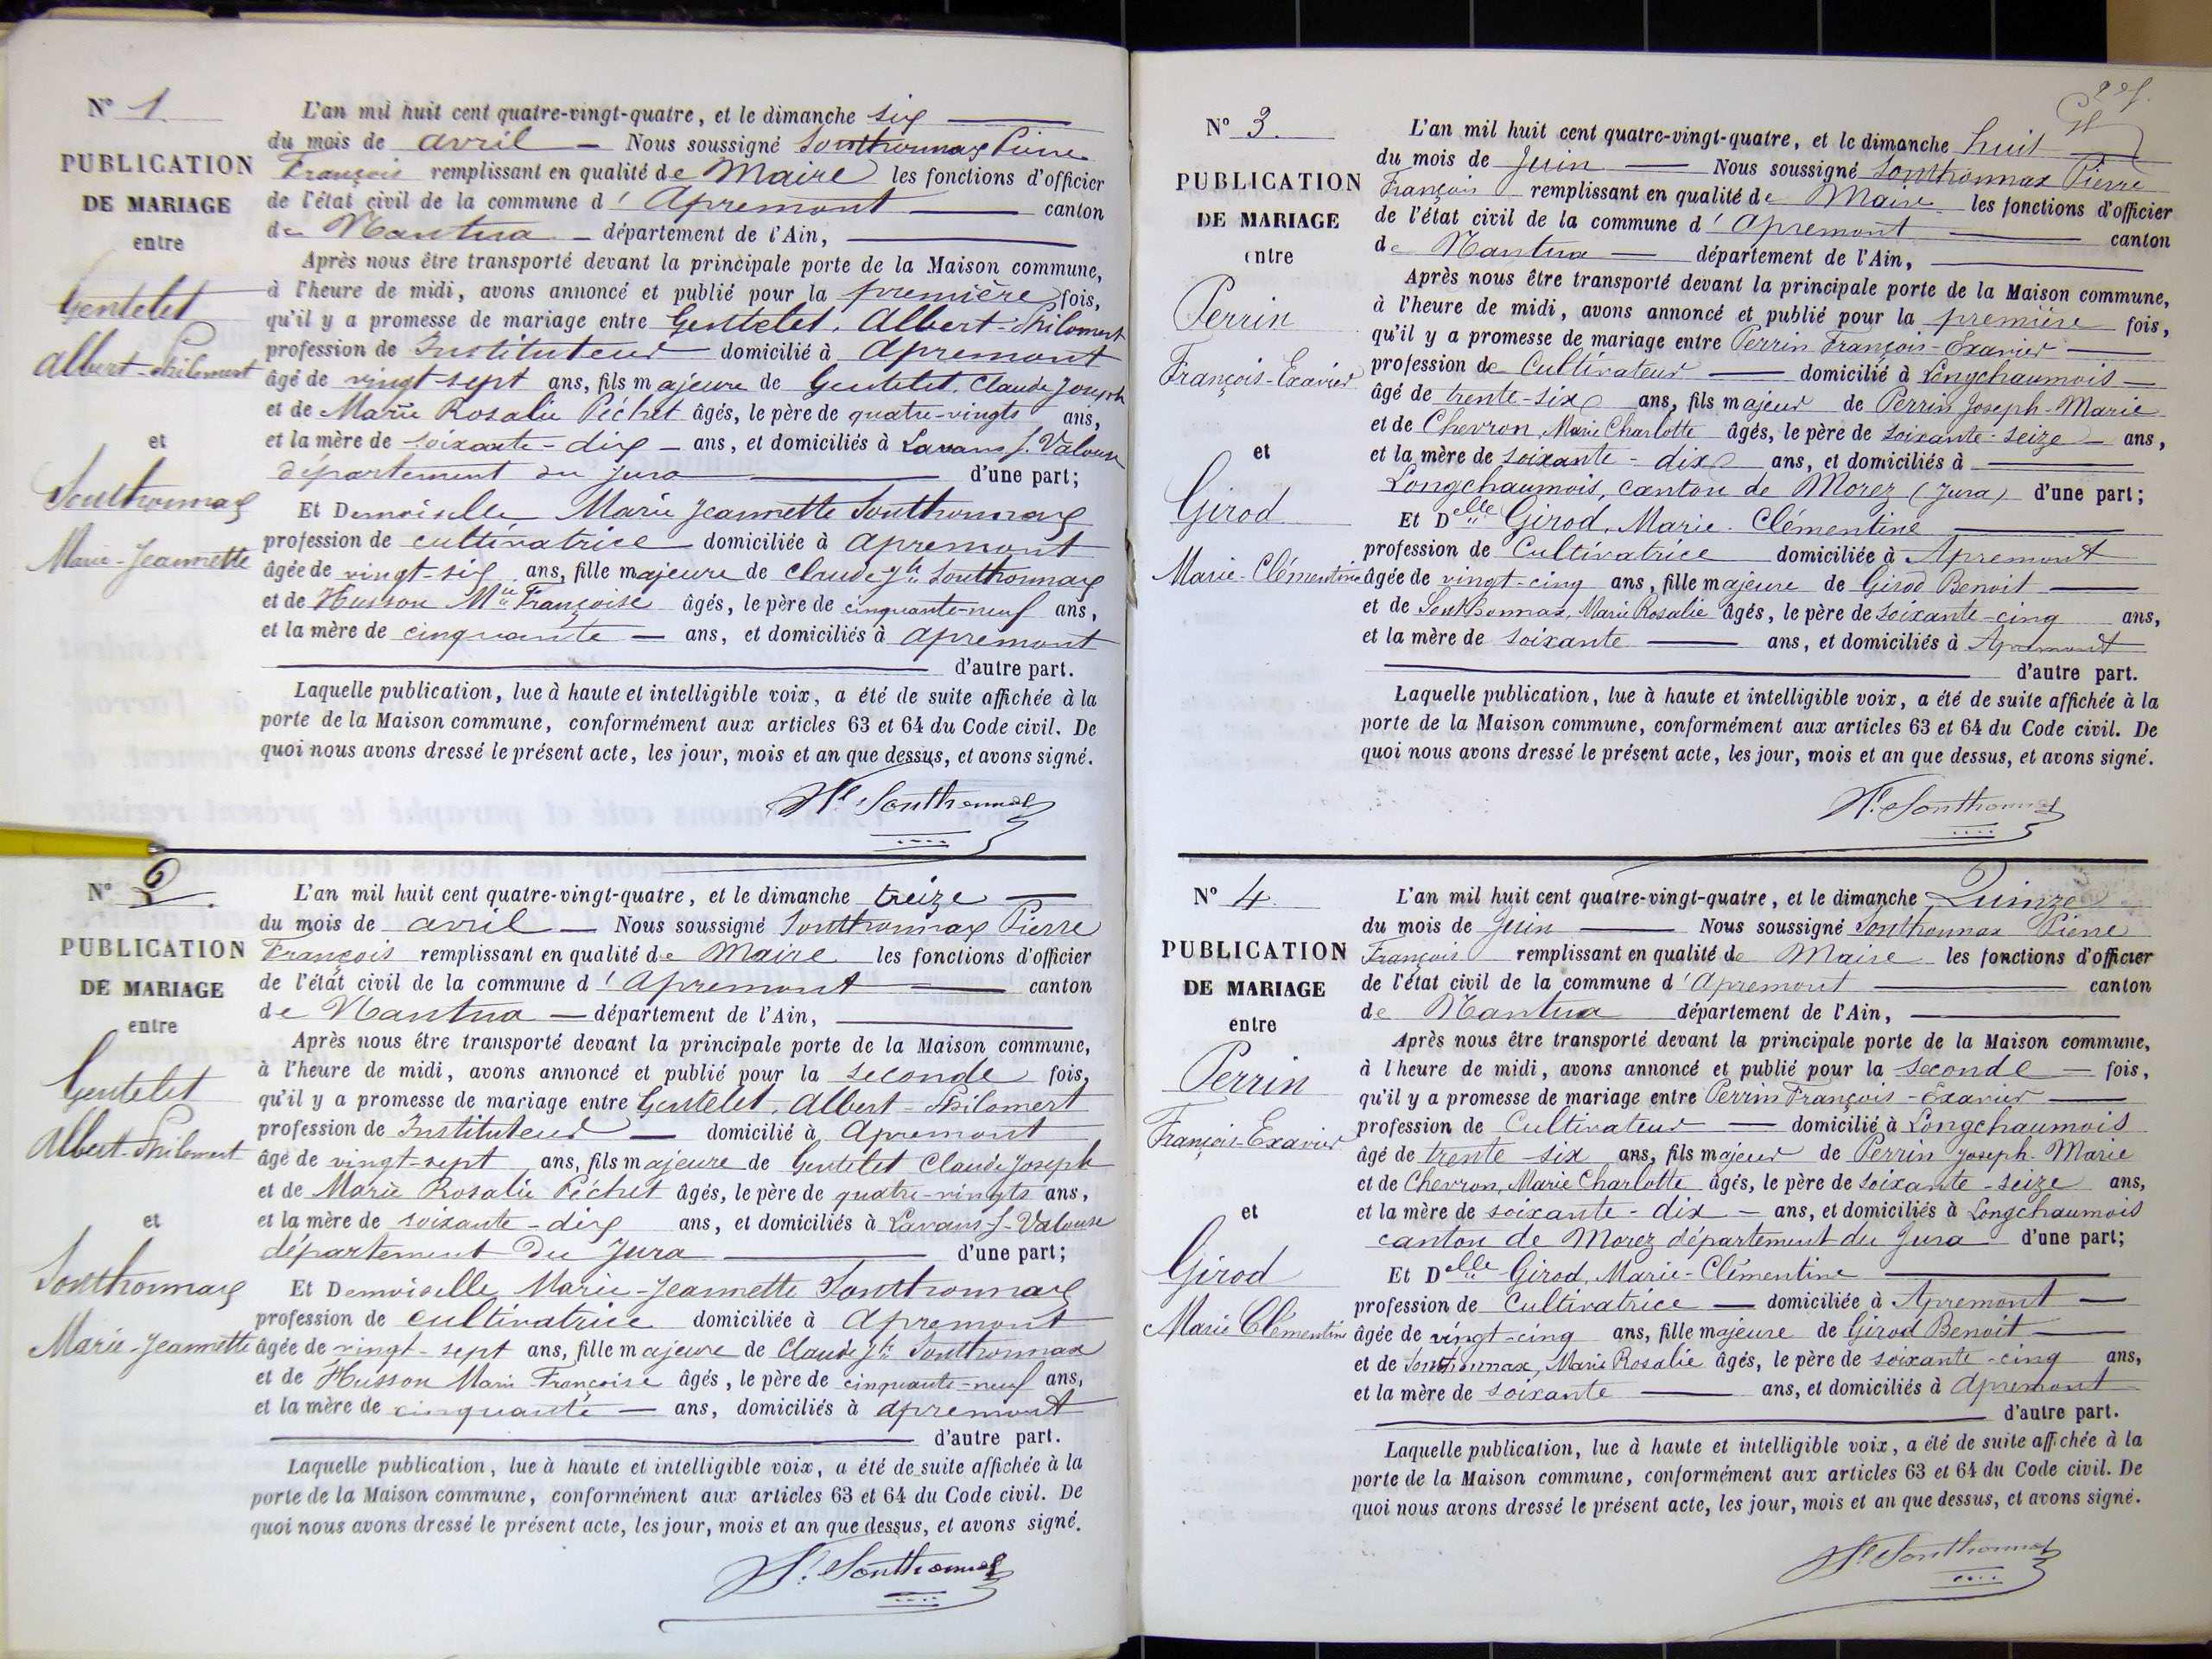 N° 1
PUBLICATION
DE MARIAGE
entre
Gentelet
Albert-Philomert
et
Southonnax
Marie-Jeannette
L'an mil huit cent quatre-vingt-quatre, et le dimanche six
du mois de avril Nous soussigné Southonnax Pierre
François remplissant en qualité de Maire les fonctions d'officier
de l'état civil de la commune d'Apremont canton
de Nantua département de l'Ain,
Après nous être transporté devant la principale porte de la Maison commune,
à l'heure de midi, avons annoncé et publié pour la première fois,
qu'il y a promesse de mariage entre Gentelet, Albert-Philomert
profession de Instituteur domicilié à Apremont
âgé de vingt-sept ans, fils majeure de Gentelet, Claude Joseph
et de Marie Rosalie Péchet âgés, le père de quatre-vingts ans,
et la mère de soixante-dix ans, et domiciliés à Lavans s. Valouse
département du Jura d'une part;
Et Demoiselle Marie Jeannette Southonnax
profession de cultivatrice domiciliée à Apremont
âgée de vingt-six ans, fille majeure de Claude Jh Southonnax
et de Husson Mie Françoise âgés, le père de cinquante-neuf ans,
et la mère de cinquante ans, et domiciliés à Apremont
d'autre part.
Laquelle publication, lue à haute et intelligible voix, a été de suite affichée à la
porte de la Maison commune, conformément aux articles 63 et 64 du Code civil. De
quoi nous avons dressé le présent acte, les jour, mois et an que dessus, et avons signé.
Southonnax
N° 2.
PUBLICATION
DE MARIAGE
entre
Gentelet
Albert-Philomert
et
Southonnax
Marie-Jeannette
L'an mil huit cent quatre-vingt-quatre, et le dimanche treize
du mois de avril Nous soussigné Southonnax Pierre
François remplissant en qualité de Maire les fonctions d'officier
de l'état civil de la commune d'Apremont canton
de Nantua département de l'Ain,
Après nous être transporté devant la principale porte de la Maison commune,
à l'heure de midi, avons annoncé et publié pour la seconde fois,
qu'il y a promesse de mariage entre Gentelet, Albert-Philomert
profession de Instituteur domicilié à Apremont
âgé de vingt-sept ans, fils majeure de Gentelet Claude Joseph
et de Marie Rosalie Péchet âgés, le père de quatre-vingts ans,
et la mère de soixante-dix ans, et domiciliés à Lavans-s-Valouse
département du Jura d'une part;
Et Demoiselle Marie-Jeannette Southonnax
profession de cultivatrice domiciliée à Apremont
âgée de vingt-sept ans, fille majeure de Claude Jh Southonnax
et de Husson Marie Françoise âgés, le père de cinquante-neuf ans,
et la mère de cinquante ans, domiciliés à Apremont
d'autre part.
Laquelle publication, lue à haute et intelligible voix, a été de suite affichée à la
porte de la Maison commune, conformément aux articles 63 et 64 du Code civil. De
quoi nous avons dressé le présent acte, les jour, mois et an que dessus, et avons signé.
Southonnax
N° 3.
PUBLICATION
DE MARIAGE
entre
Perrin
François-Exavier
et
Girod
Marie-Clémentine
L'an mil huit cent quatre-vingt-quatre, et le dimanche huit
du mois de Juin Nous soussigné Southonnax Pierre
François remplissant en qualité de Maire les fonctions d'officier
de l'état civil de la commune d'Apremont canton
de Nantua département de l'Ain,
Après nous être transporté devant la principale porte de la Maison commune,
à l'heure de midi, avons annoncé et publié pour la première fois,
qu'il y a promesse de mariage entre Perrin François-Exavier
profession de Cultivateur domicilié à Longchaumois
âgé de trente-six ans, fils majeur de Perrin Joseph-Marie
et de Chevron, Marie Charlotte âgés, le père de soixante-seize ans,
et la mère de soixante-dix ans, et domiciliés à
Longchaumois, canton de Morez (Jura) d'une part;
Et Delle Girod, Marie-Clémentine
profession de Cultivatrice domiciliée à Apremont
âgée de vingt-cinq ans, fille majeure de Girod Benoit
et de Southonnax, Marie Rosalie âgés, le père de soixante-cinq ans,
et la mère de soixante ans, et domiciliés à Apremont
d'autre part.
Laquelle publication, lue à haute et intelligible voix, a été de suite affichée à la
porte de la Maison commune, conformément aux articles 63 et 64 du Code civil. De
quoi nous avons dressé le présent acte, les jour, mois et an que dessus, et avons signé.
Southonnax
N° 4.
PUBLICATION
DE MARIAGE
entre
Perrin
François-Exavier
et
Girod
Marie Clémentine
L'an mil huit cent quatre-vingt-quatre, et le dimanche Quinze
du mois de Juin Nous soussigné Southonnax Pierre
François remplissant en qualité de Maire les fonctions d'officier
de l'état civil de la commune d'Apremont canton
de Nantua département de l'Ain,
Après nous être transporté devant la principale porte de la Maison commune,
à l'heure de midi, avons annoncé et publié pour la seconde fois,
qu'il y a promesse de mariage entre Perrin François-Exavier
profession de Cultivateur domicilié à Longchaumois
âgé de trente-six ans, fils majeur de Perrin Joseph-Marie
et de Chevron, Marie Charlotte âgés, le père de soixante-seize ans,
et la mère de soixante-dix ans, et domiciliés à Longchaumois
canton de Morez département du Jura d'une part;
Et Delle Girod, Marie-Clémentine
profession de Cultivatrice domiciliée à Apremont
âgée de vingt-cinq ans, fille majeure de Girod Benoit
et de Southonnax, Marie Rosalie âgés, le père de soixante-cinq ans,
et la mère de soixante ans, et domiciliés à Apremont
d'autre part.
Laquelle publication, lue à haute et intelligible voix, a été de suite affichée à la
porte de la Maison commune, conformément aux articles 63 et 64 du Code civil. De
quoi nous avons dressé le présent acte, les jour, mois et an que dessus, et avons signé.
Southonnax